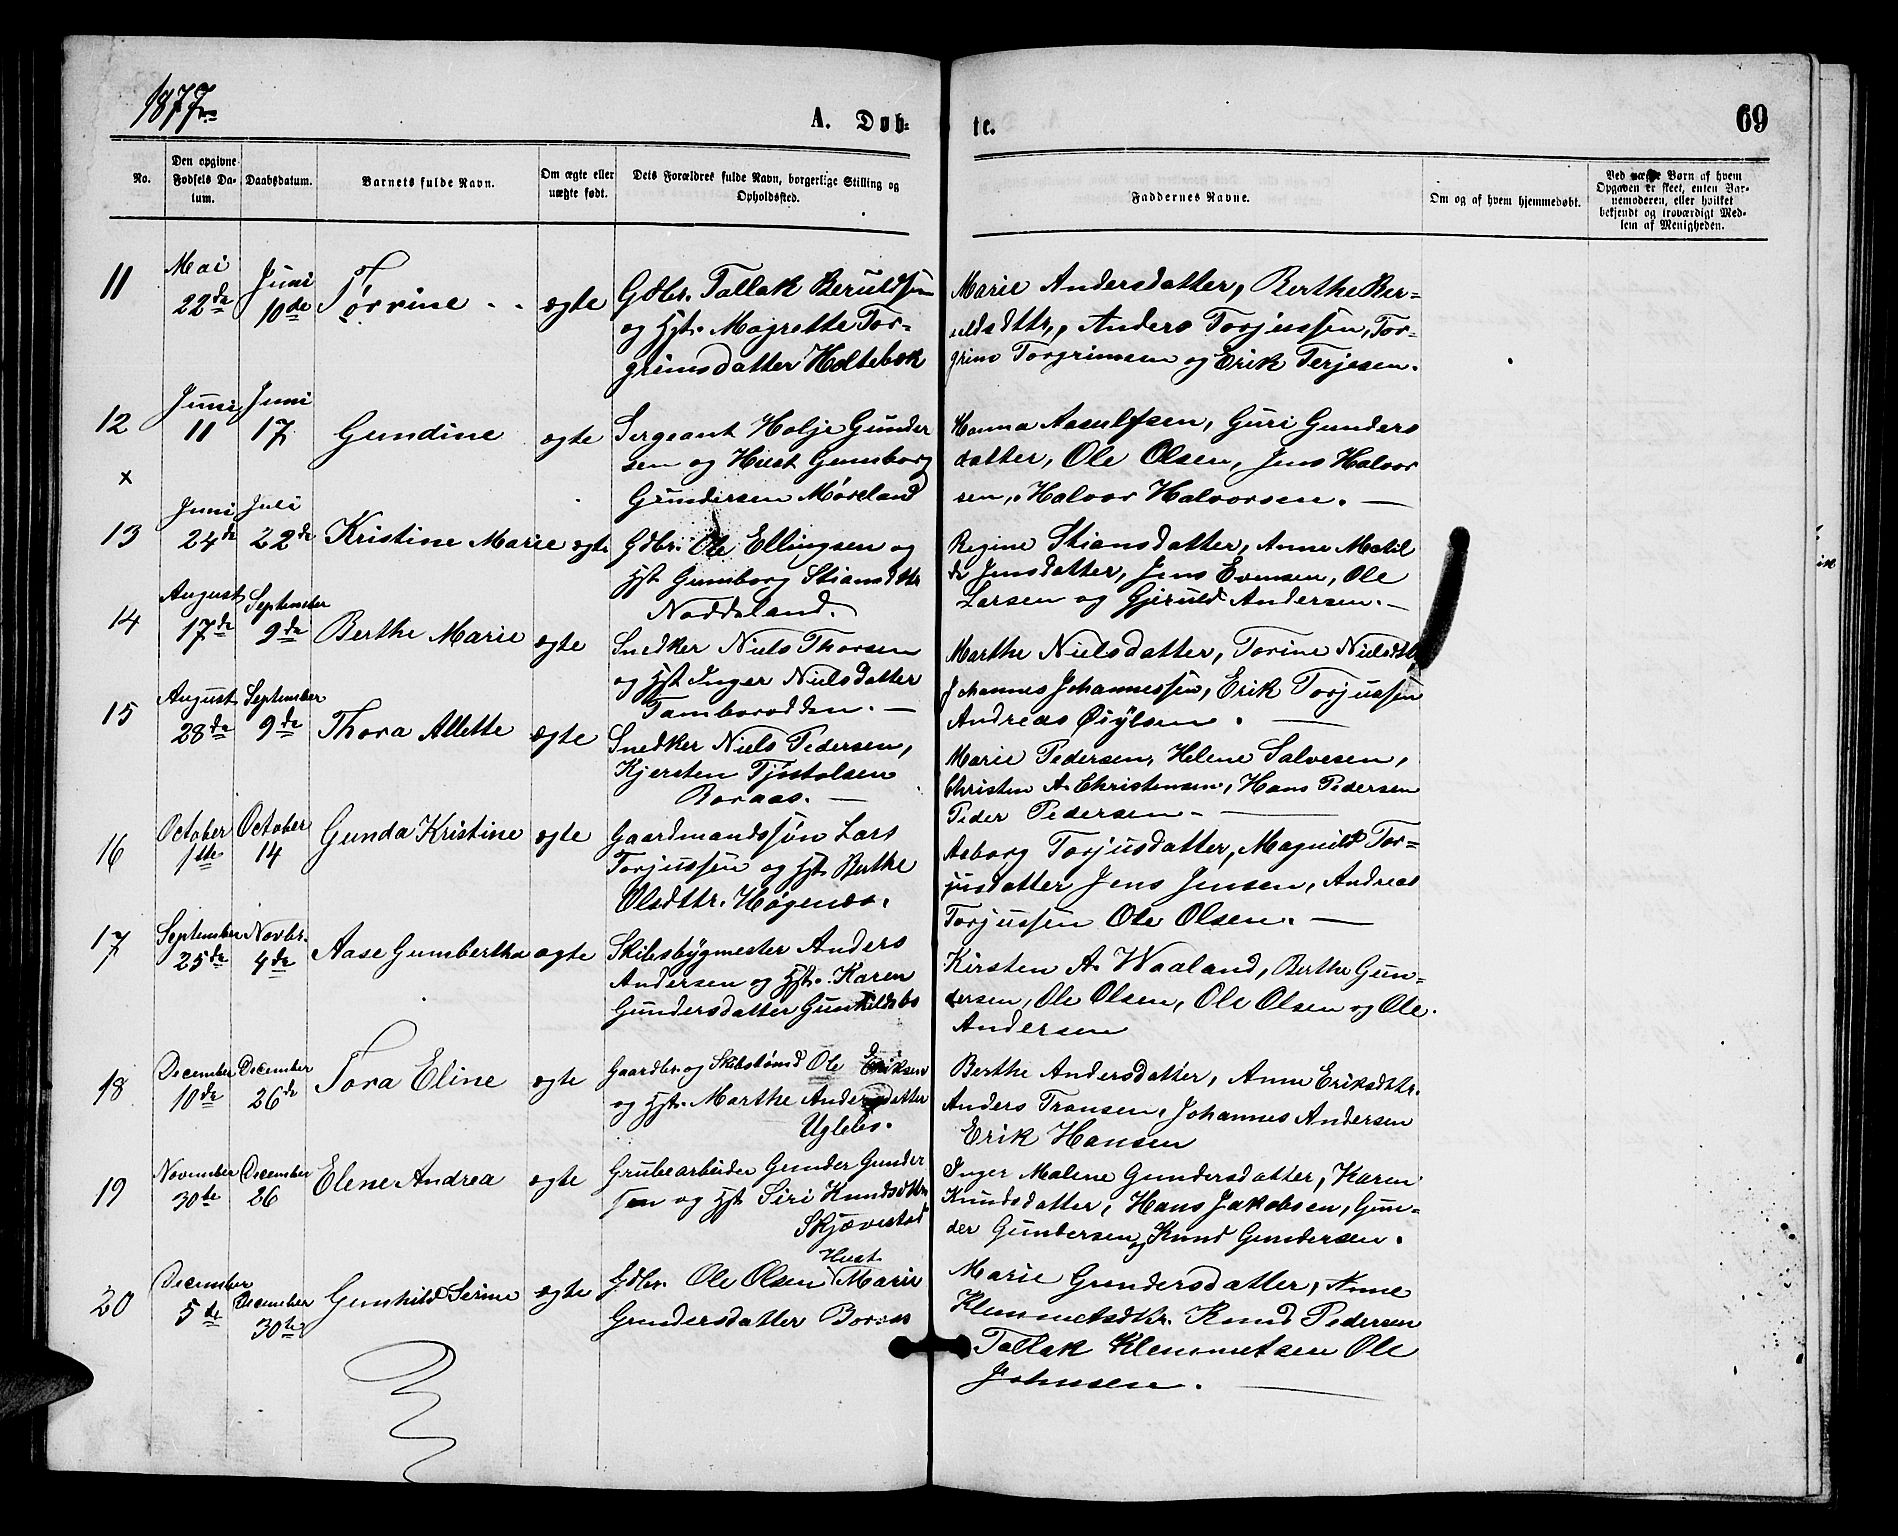 1877
A. Døb-
te.
69
No.
Den opgivne Fødsels Datum.
Daabsdatum.
Barnets fulde Navn.
Om ægte eller uægte født.
Dets Forældres fulde Navn, borgerlige Stilling og Opholdssted.
Faddernes Navne.
Om og af hvem hjemmedøbt.
Ved uægte Børn af hvem Opgaven er skeet, enten Barnemoderen, eller hvilket bekjendt og troværdigt Medlem af Menigheden.
11 Mai 22de Juni 10de Torrine ægte
Gdbr. Tallak Beruldsen
og Hst. Magrette Tor-
grimsdatter Holtebæk
Marie Andersdatter, Berthe Ber-
uldsdttr, Anders Torjussen, Tor-
grim Torgrimsen og Erik Terjesen.
12 Juni 11 Juni 17 Gundine ægte
x
Sergeant Halje Gunder
sen og Hust Gunborg
Gundersen Møreland
Hanna Aasulfsen, Guri Gunders
datter, Ole Olsen, Jens Halvor
sen, Halvor Halvorsen. —
13 Juni 24de Juli 22de Kristine Marie ægte
Gdbr. Ole Ellingsen og
Hst Gunborg Stiansdttr
Noddeland.
Regine Stiansdatter, Anne Matil
de Jensdatter, Jens Evensen, Ole
Larsen og Gjeruld Andersen. —
14 August 17de September 9de Berthe Marie ægte
Snedker Niels Thorsen
og Hst Inger Nielsdatter
Tamborodden. —
Marthe Nielsdatter, Torine Nielsdttr
Johannes Johannessen, Erik Torjussen
Andreas Øiylsen. —
15 August 28de September 9de Thora Allette ægte
Snedker Niels Pedersen,
Kjersten Tjøstolsen
Boraas. —
Marie Pedersen, Helene Salvesen,
Christen A. Christensen, Hans Pedersen
Peder Pedersen —
16 October 1ste October 14 Gunda Kristine ægte
Gaardmandssøn Lars
Torjussen og Hst. Berthe
Olsdttr. Høgenæs.
Asborg Torjusdatter, Magnild Tor-
jusdatter Jens Jensen, Andreas
Torjussen Ole Olsen. —
17 September 25de Novbr. 4de Aase Gumbertha ægte
Skibsbygmester Anders
Andersen og Hst. Karen
Gundersdatter Gunhildsbo
Kirsten A. Waaland, Berthe Gun-
dersen, Ole Olsen, Ole Olsen og Ole
Andersen
18 December 10de December 26de Tora Eline ægte
Gaardbr. og Skibstømd Ole Eriksen
og Hst. Marthe Andersdatter
Uglebo.
Berthe Andersdatter, Anne Eriksdttr.
Anders Transen, Johannes Andersen
Erik Hansen
19 November 30te December 26 Elene Andrea ægte
Grubearbeider Gunder Gunder
sen og Hst Siri Knudsdttr
Skjævestad
Inger Malene Gundersdatter, Karen
Knudsdatter, Hans Jakobsen, Gun-
der Gundersen og Knud Gundersen.
20 December 5te December 30te Gunhild Serine ægte
Gdbr. Ole Olsen Hust Marie
Gundersdatter Boraas
Marie Gundersdatter, Anne
Klemmetsdttr. Knud Pedersen
Tallak Klemmetsen Ole
Johnsen. —